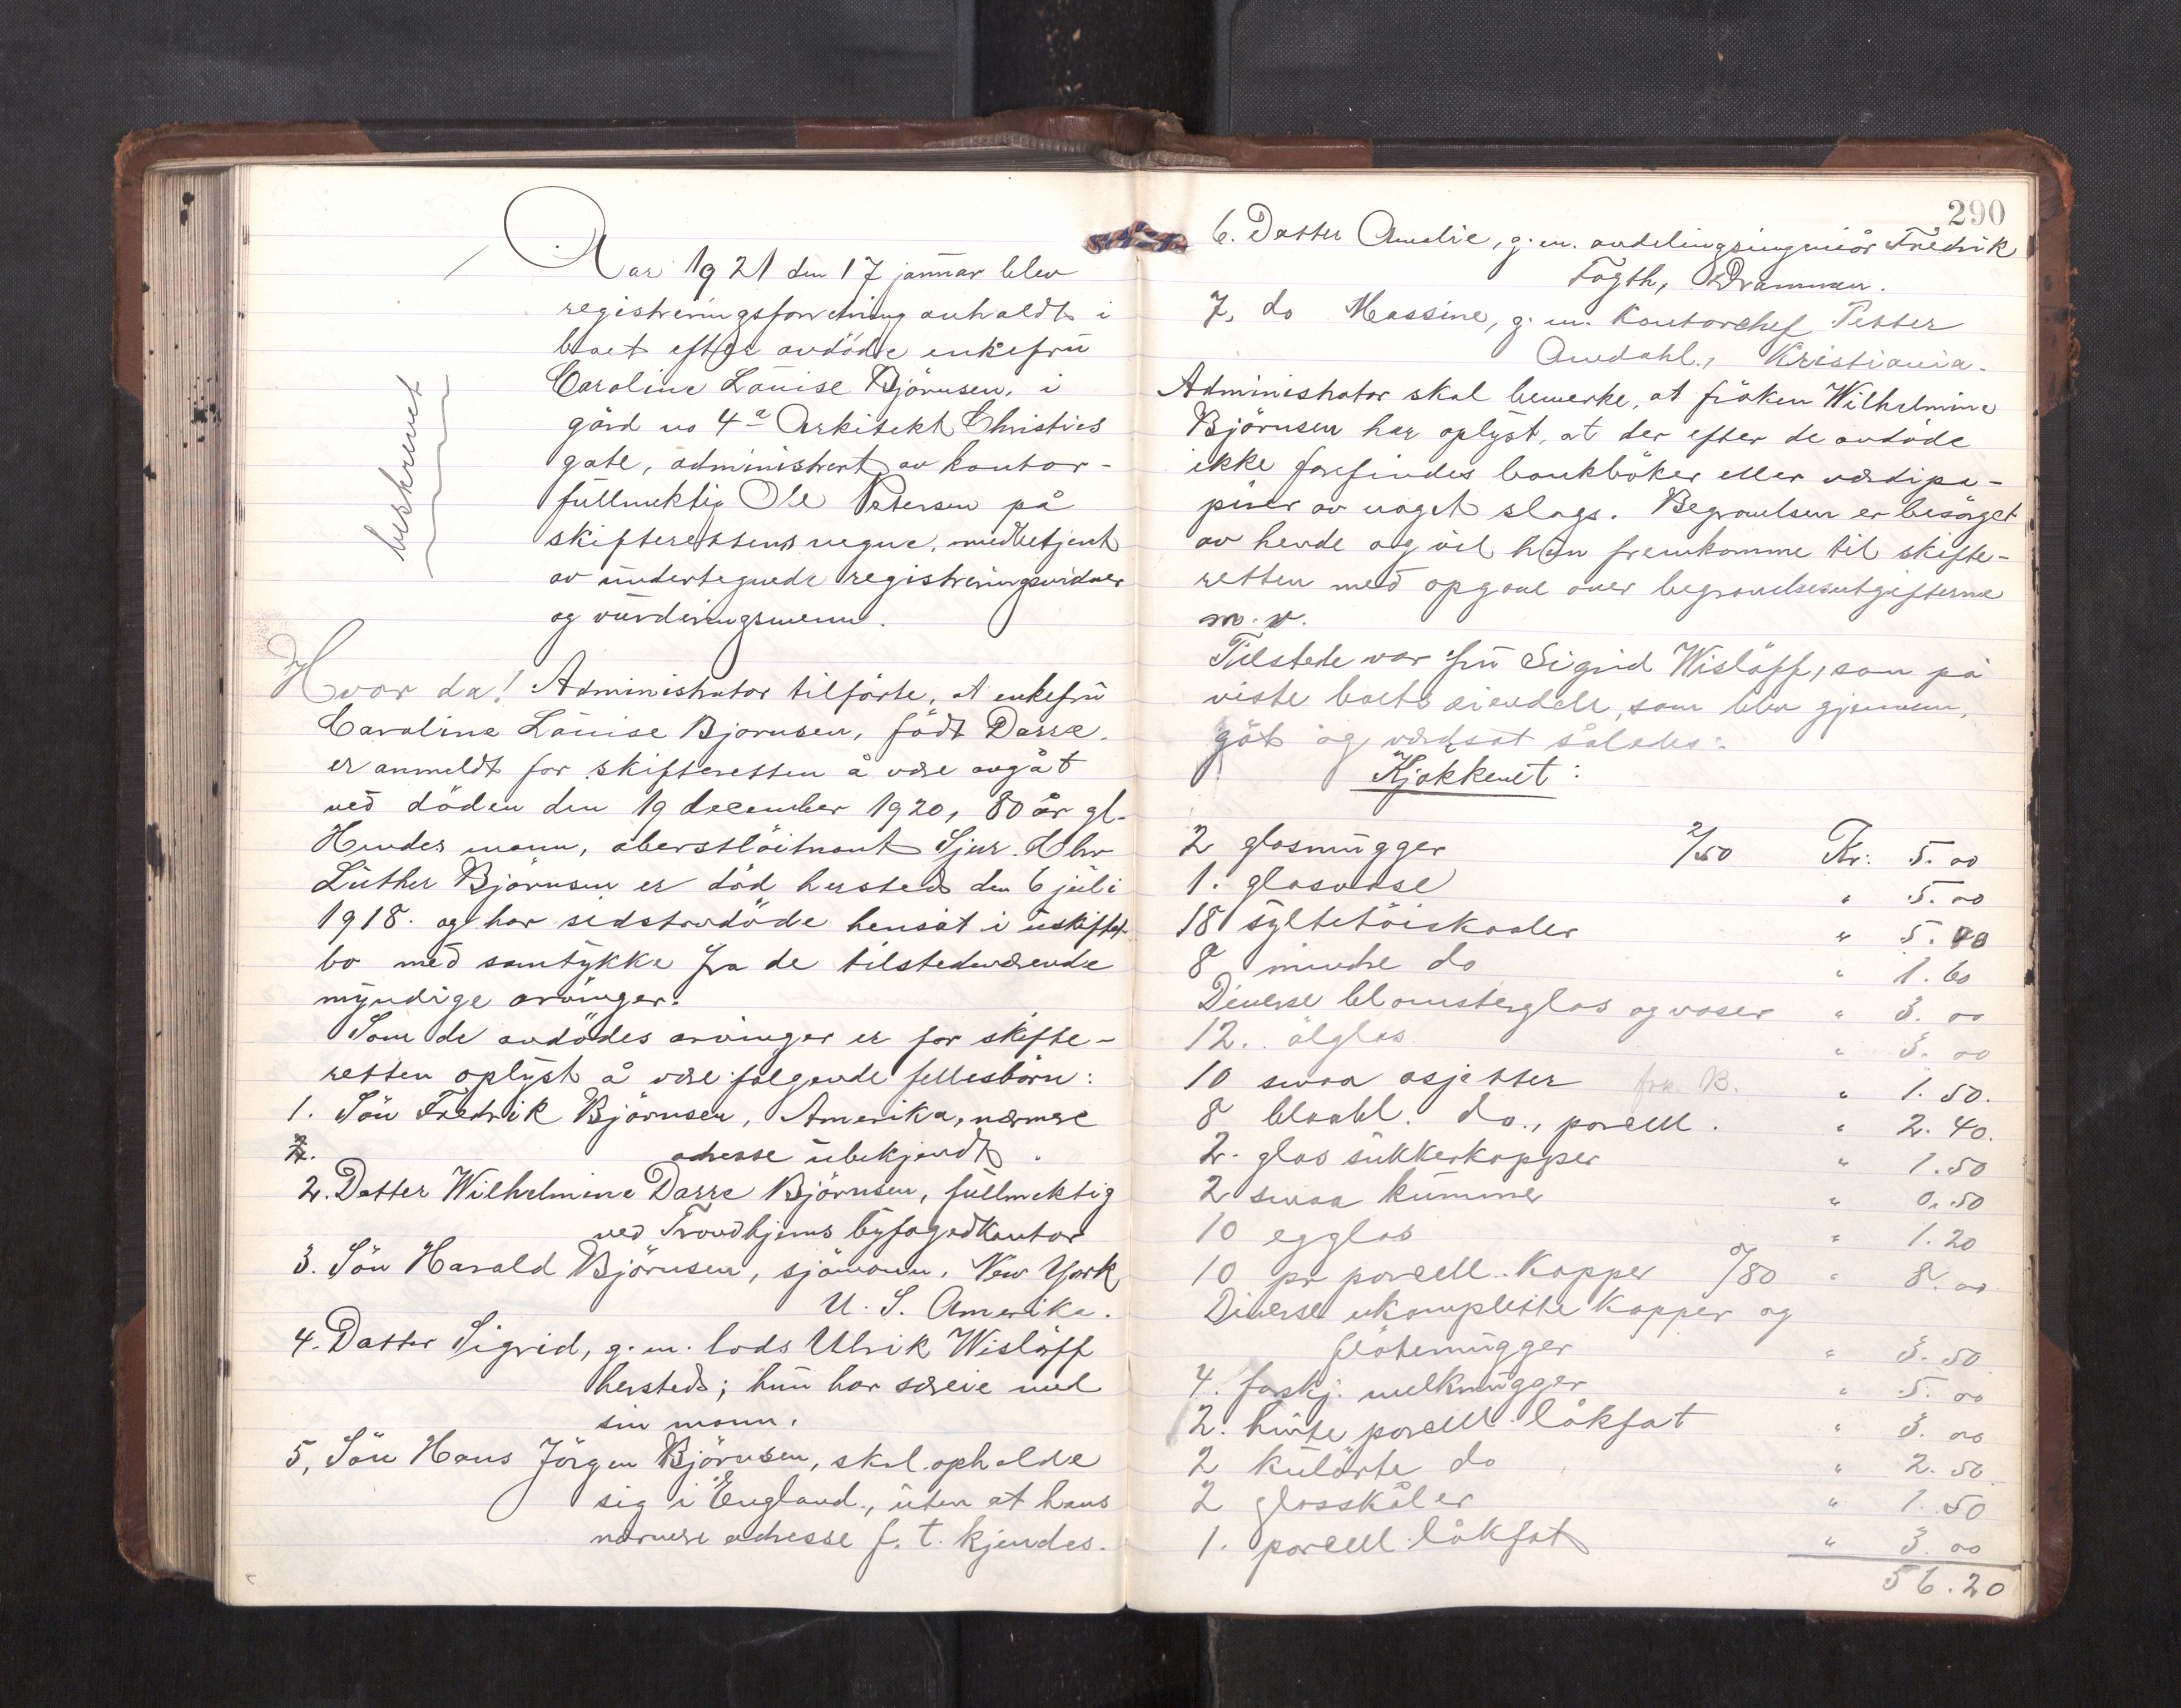 Aar 1921 den 17 januar blev
registreringsforretning avholdt i
boet efter avdöde enkefru
Caroline Louise Björnsen, i
gård no 4a Arkitekt Christies
gate, administrert av kontor-
fullmektig Ole Petersen på
skifterettens vegne, medbetjent
av undertegnede registreringsvidner
og vurderingsmenn.
beskrevet
Hvor da! Administrator tilförte, at enkefru
Caroline Louise Bjornsen, födt Darre
er anmeldt for skifteretten å være avgåt
ved döden den 19 december 1920, 80 år gl.
Hendes mann, oberstlöitnant Sjur Chr
Luther Björnsen er död hersteds den 6 juli
1918. og har sidstavdöde hensat i uskiftet
bo med samtykke fra de tilstedeværende
myndige arvinger.
Som de avdödes arvinger er for skifte-
retten oplyst å være fölgende fellesbörn:
1. Sön Fredrik Björnsen, Amerika, nærmere
2. adresse ubekjendt.
2. Datter Wilhelmine Darre Björnsen, fullmektig
ved Trondhjems byfogedkontor
3. Sön Harald Björnsen, sjömann, New York
U. S. Amerika.
4. Datter Sigrid, g. m. lods Ulrik Wislöff
hersteds; hun har særeie med
sin mann.
5, Sön Hans Jörgen Björnsen, skal opholde
sig i England, uten at hans
nærmere adresse f. t. kjendes.
290
6. Datter Amalie, g. m. avdelingsingeniör Fredrik
Fogth, Drammen.
7, do Massine, g. m. kontorchef Petter
Amdahl, Kristiania.
Administrator skal bemerke, at fröken Wilhelmine
Björnsen har oplyst, at der efter de avdöde
ikke forefindes bankböker eller verdipa-
pirer av noget slags. Begravelsen er besörget
av hende og vil hun fremkomme til skifte-
retten med opgave over begravelsesutgifterne
m. v.
Tilstede var fru Sigrid Wislöff, som på
viste boets eiendele, som blev gjennem-
gåt og verdsat således:
Kjøkkenet:
2 glasmugger 2/50 Kr: 5.00
1. glasvase " 5.00
18 syltetöiskaaler " 5.90
8 mindre do " 1.60
Diverse blomsterglas og vaser " 3.00
12. ölglas " 3.00
10 smaa asjetter frk. B. " 1.50.
8 blaabl. do., porcell. " 2.40.
2. glas sukkerkopper " 1.50
2 smaa kummer " 0.50
10 egglas " 1.20
10 pr porcell. kopper 0/80 " 8.00
Diverse ukomplette kopper og
flötemugger " 3.50
4. forskj. melkmugger " 5.00
2. hvite porcell låkfat " 3.00
2 kulörte do " 2.50
2 glasskåler " 1.50
1. porcell låkfat " 3.00
56.20